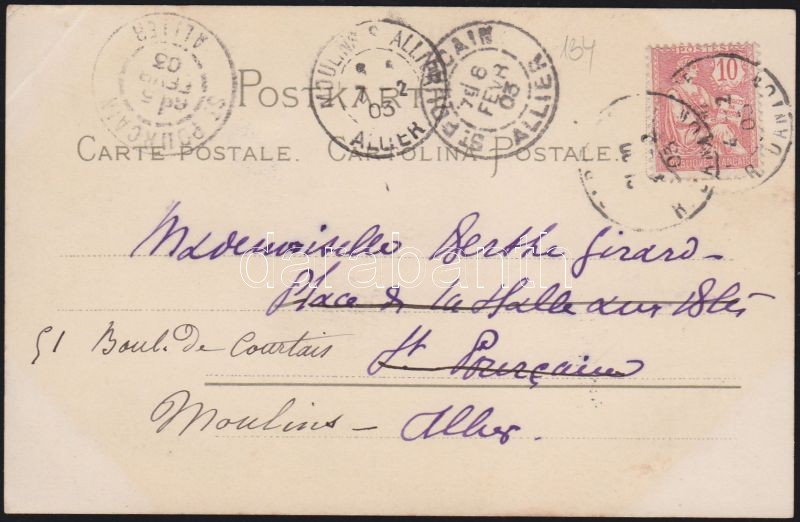 134
POSTES
10
POSTKARTE
CARTE POSTALE. CARTOLINA POSTALE.
MOULINS S ALLIER
7 - 2
03
ALLIER
ST POURÇAIN
6
FEVR
03
ALLIER
ST POURÇAIN
5
FEVR
03
ALLIER
Mademoiselle Berthe Girard -
Place de la Halle aux Blés
51 Boul. de Courtais St Pourçain
Moulins - Allier.
darabanth